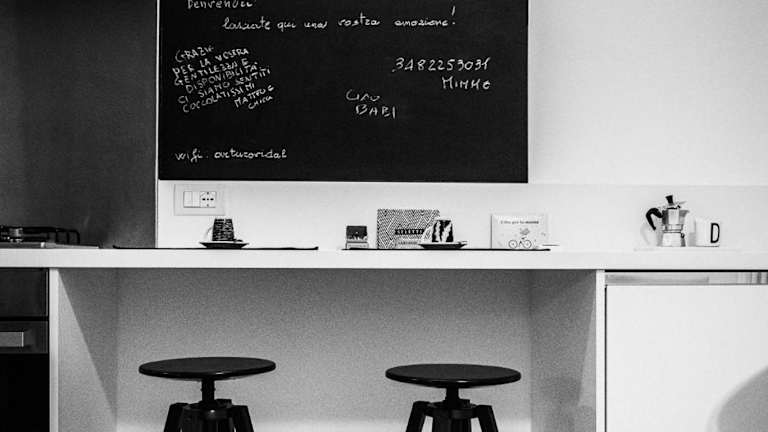 Benvenuti
lasciate qui una vostra emozione!
GRAZIE
PER LA VOSTRA
GENTILEZZA E
DISPONIBILITÀ
CI SIAMO SENTITI
COCCOLATISSIMI
MATTEO E
3482253031
MIMMO
CIAO
BABI
wifi: arturovidal
D